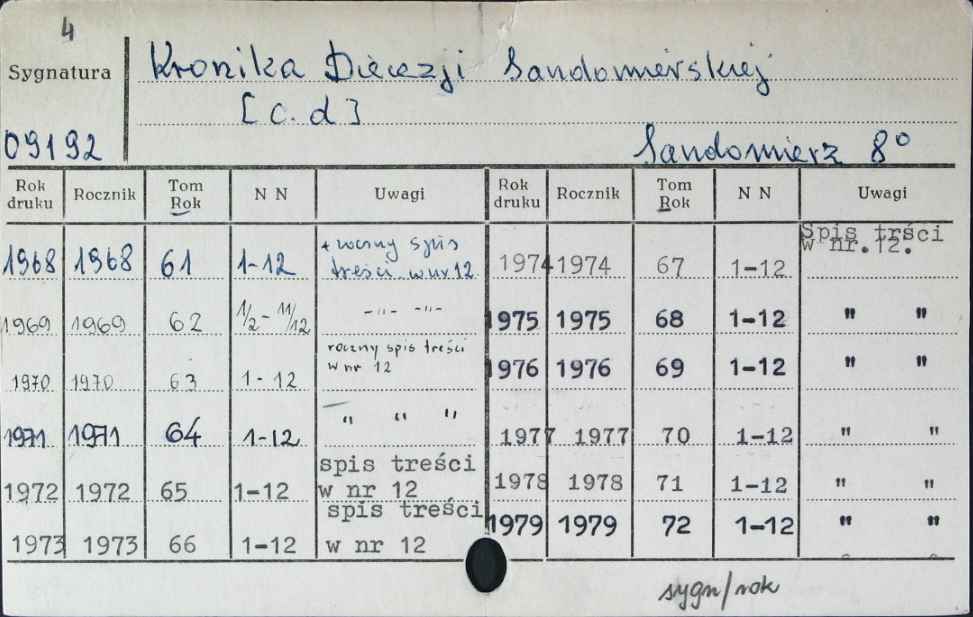 4
Sygnatura Kronika Diecezji Sandomierskiej
[c.d]
09192 Sandomierz 8°
Rok druku Rocznik Tom Rok N N Uwagi Rok druku Rocznik Tom Rok N N Uwagi
1968 1968 61 1-12 + roczny spis treści w nr 12
1969 1969 62 1/2 - 11/12 -"- -"-
1970 1970 63 1-12 roczny spis treści w nr 12
1971 1971 64 1-12 " " "
1972 1972 65 1-12 spis treści w nr 12
1973 1973 66 1-12 spis treści w nr 12
1974 1974 67 1-12 Spis trści w nr.12.
1975 1975 68 1-12 " "
1976 1976 69 1-12 " "
1977 1977 70 1-12 " "
1978 1978 71 1-12 " "
1979 1979 72 1-12 " "
sygn/rok